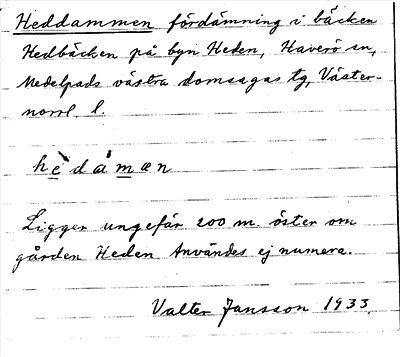 Heddammen fördämning i bäcken
Hedbäcken på byn Heden, Haverö sn,
Medelpads västra domsagas tg, Väster-
norrl. l.
hèdámæn
Ligger ungefär 200 m. öster om
gården Heden Användes ej numera.
Valter Jansson 1933.